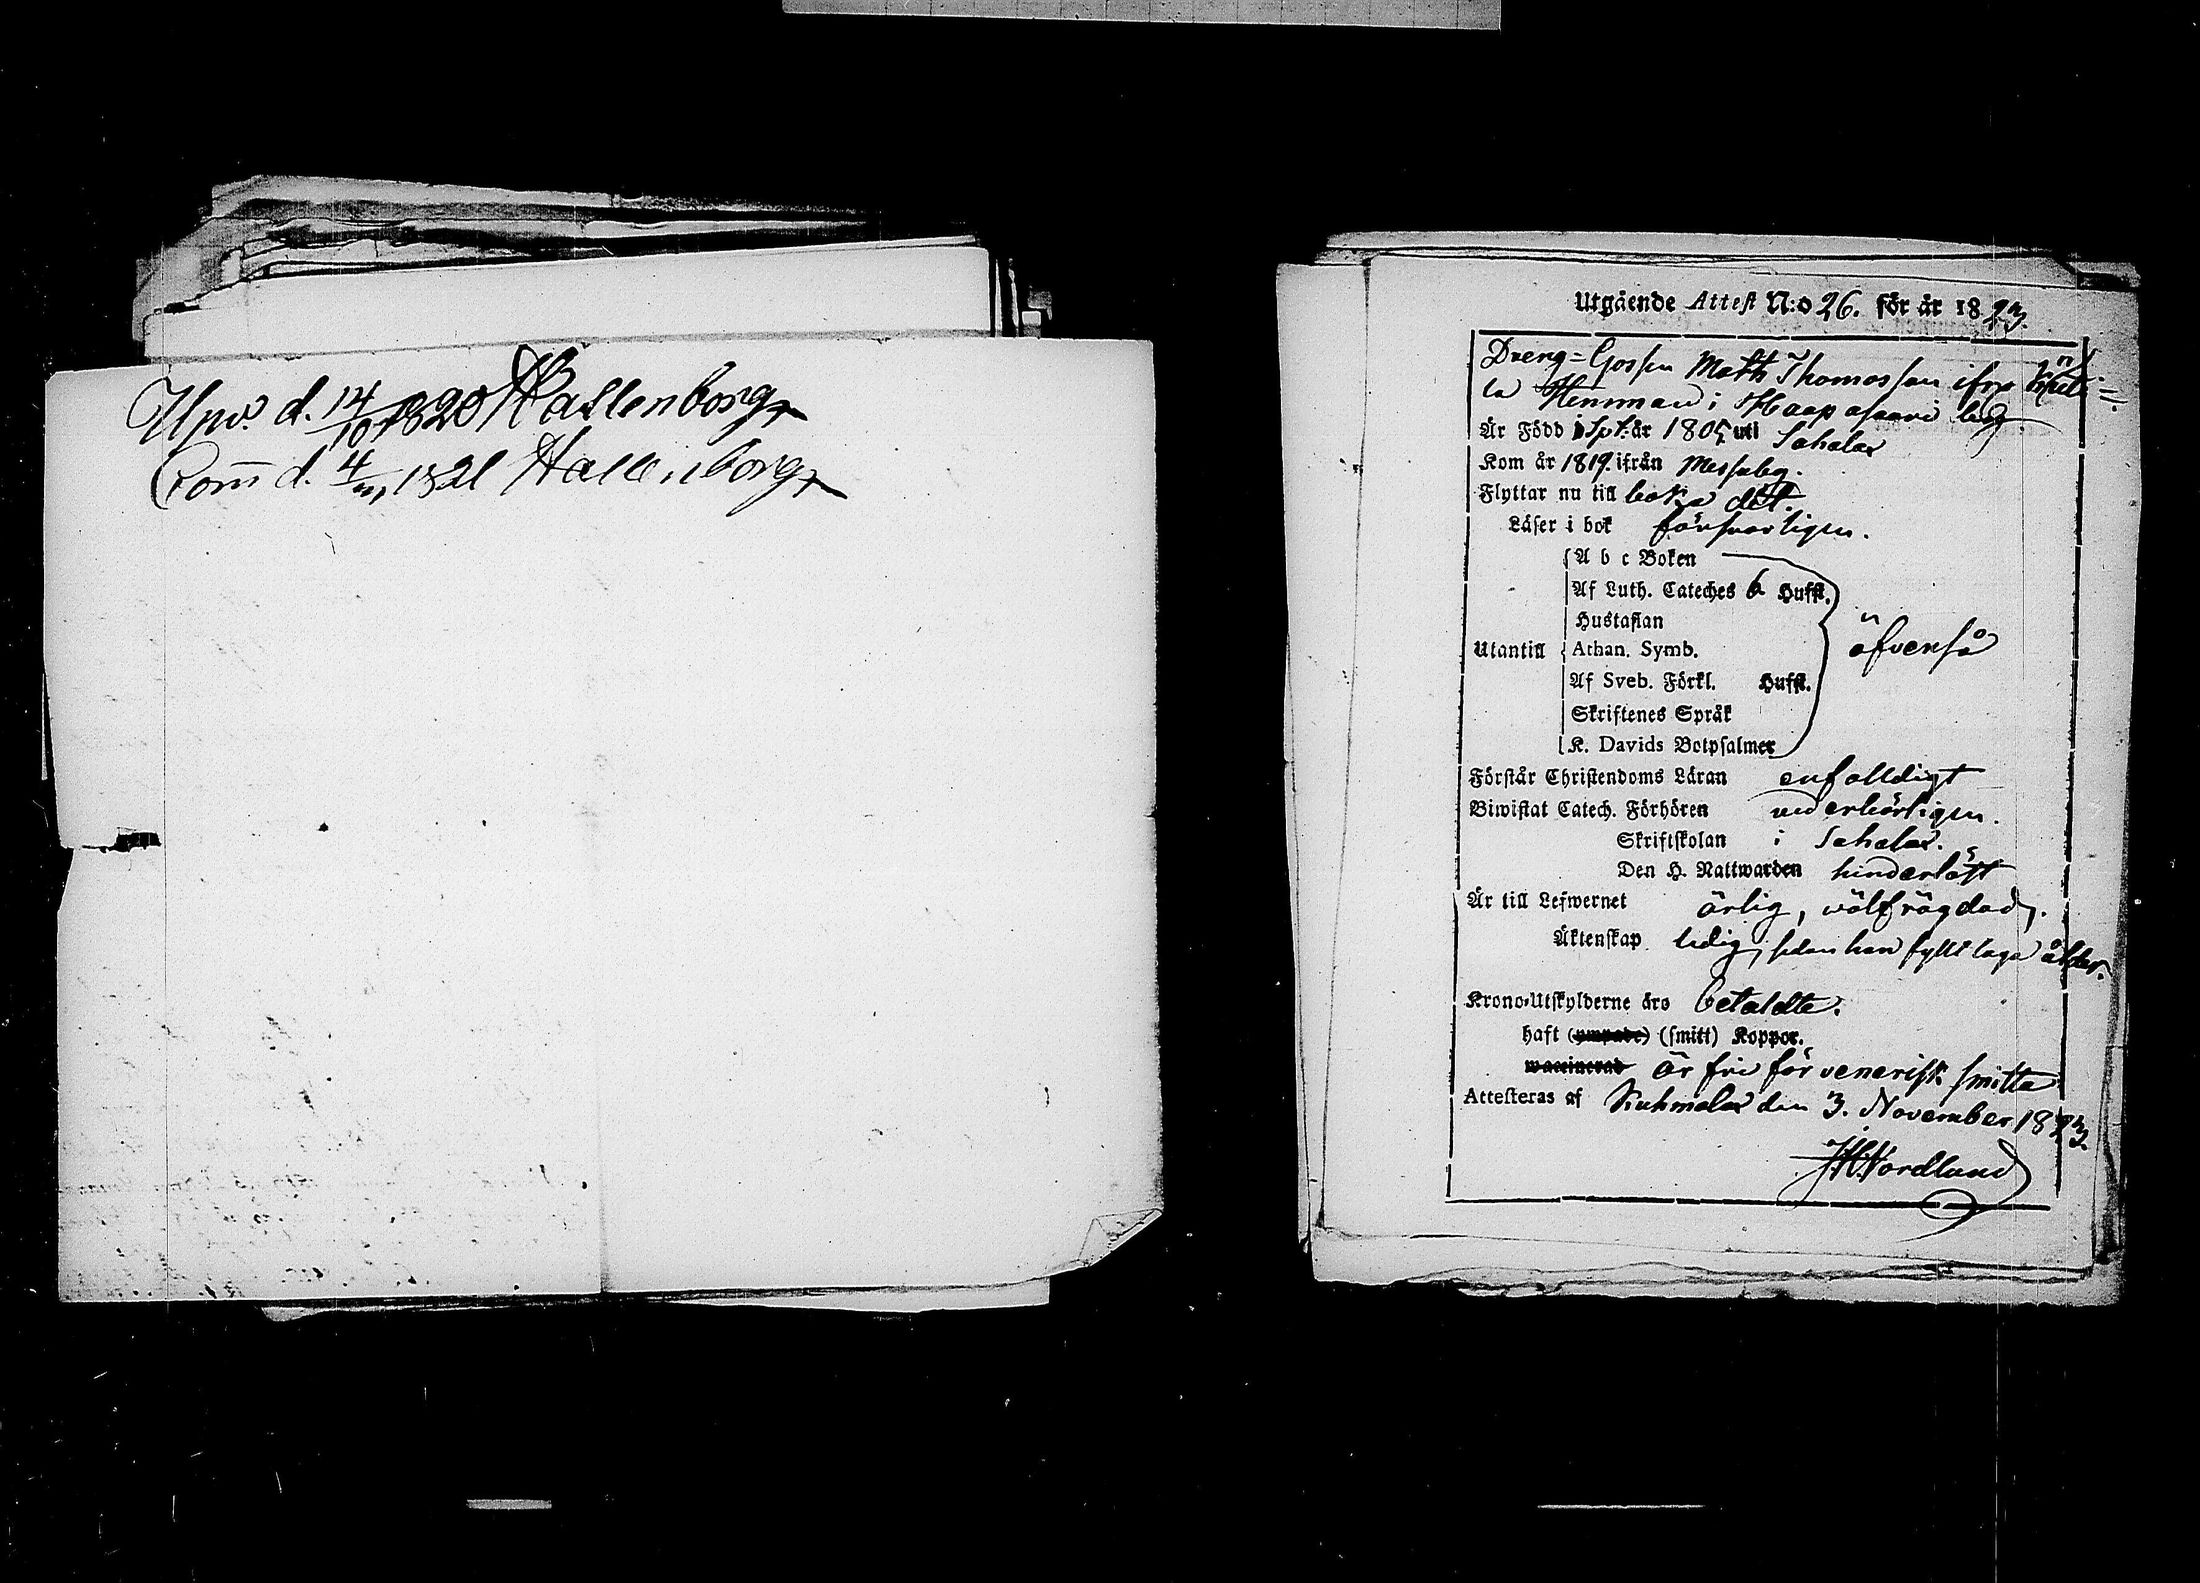 Upv. d. 14/10 1820 Hallenborg
Com̅ d. 4/11 1821 Hallenborg
Utgående Attest N:o 26. för år 1823.
Dreng-Gossen Matts Thomasson ifrån
la Hemman i Haapasaari by
Är Född i Spt. år 1805 uti Sahalax
Kom år 1819. ifrån Messuby.
Flyttar nu till baka dit.
Läser i bok försvarligen.
A b c Boken
Af Luth. Cateches 6 Hufst.
Hustaflan
Utantill Athan. Symb. äfvenså
Af Sveb. Förkl. Hufst.
Skriftenes Språk
K. Davids Botpsalmer
Förstår Christendoms Läran enfalldigt
Biwistat Catech. Förhören vederbörligen.
Skriftskolan i Sahalax.
Den H. Nattwarden hinderlöst
Är till Lefwernet ärlig, välfrägdad,
Äktenskap ledig, sedan han fyllt laga ålder.
Krono-Utskylderne äro betaldte.
haft (ympade) (smitt) Koppor.
waccinerad är fri för venerisk smitta
Attesteras af Kuhmalax den 3. November 1823.
JH Nordlund